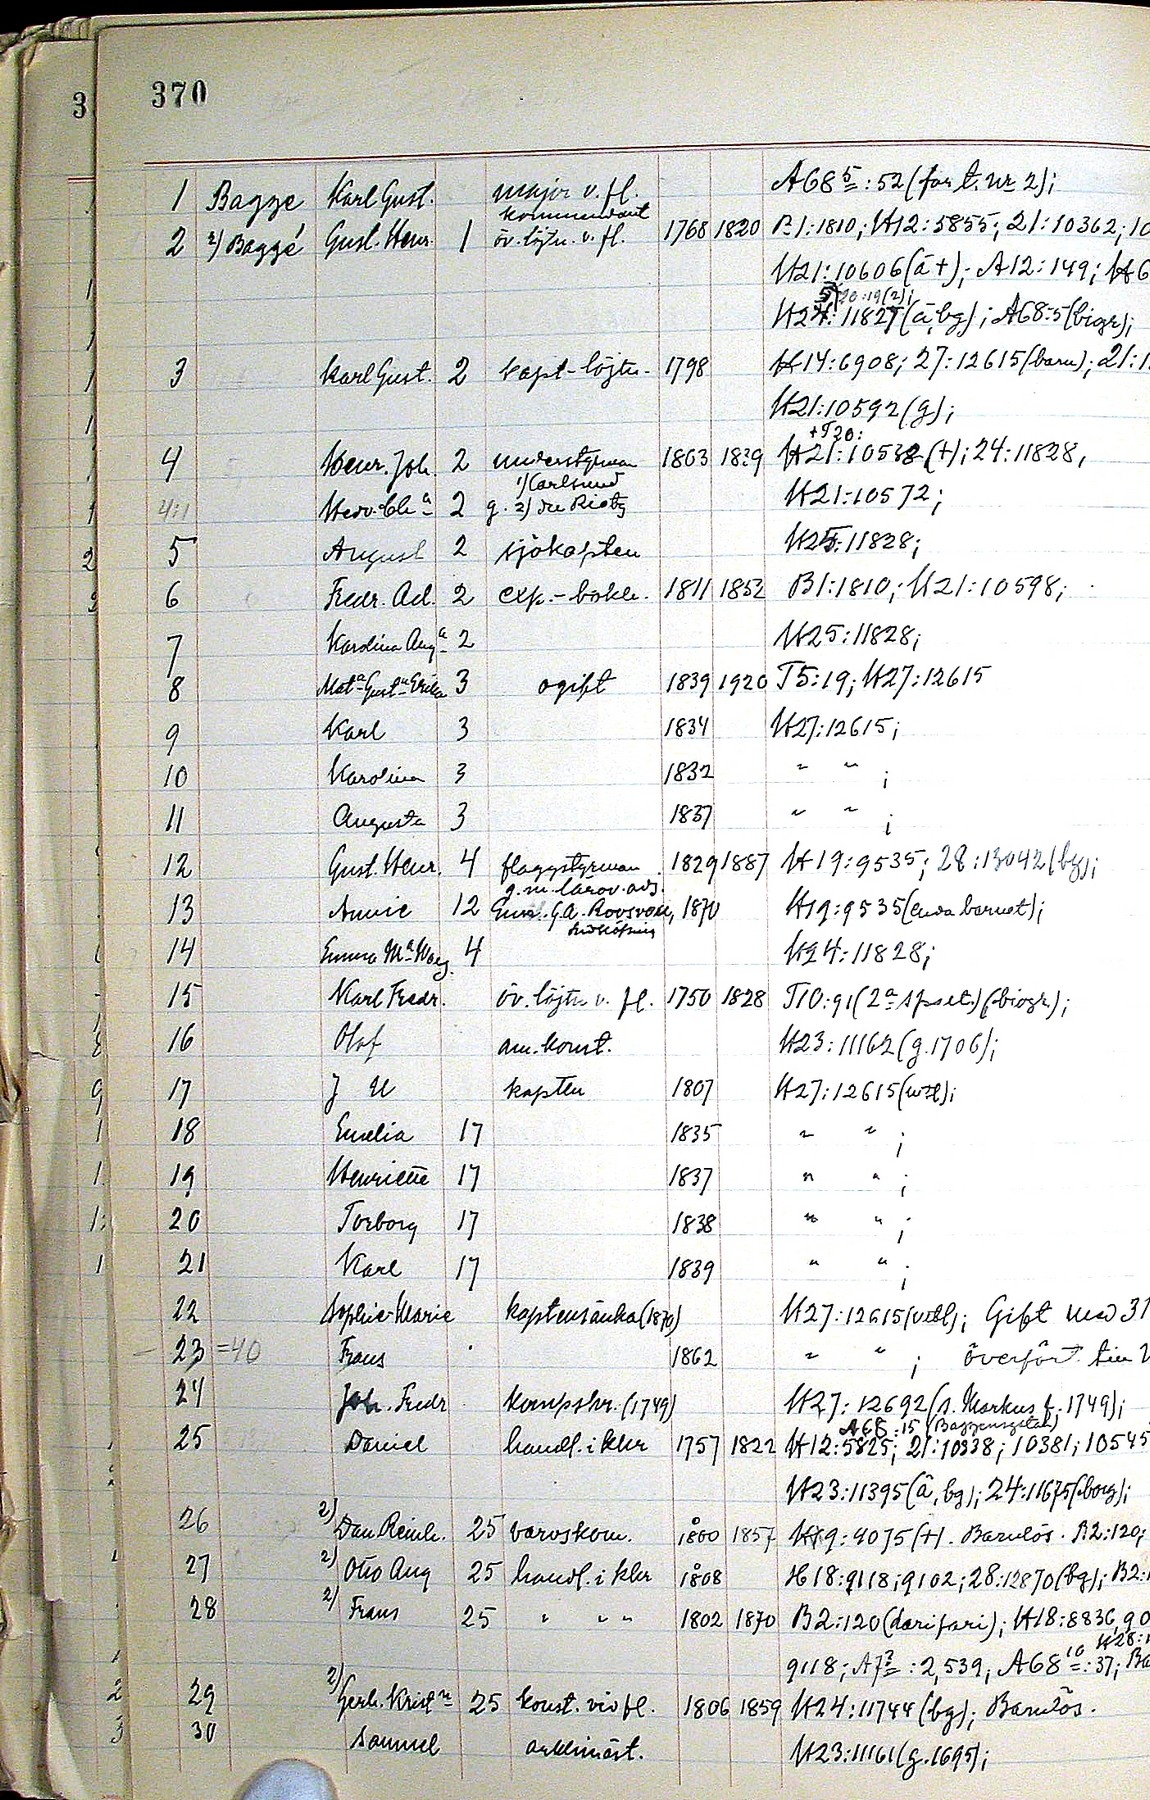 370
1 Bagge Karl Gust. major v. fl. A68 5 : 52 (far t. nr 2);
kommendant
2 2) Baggé Gust. Henr. 1 öv. löjtn. v. fl. 1768 1820 B1:1810; H12:5855; 21:10362; 10
H21:10606 (ä +); A12:149; H6
20:19(2);
H24:11827 (ä, bg); A68:5 (biogr);
3 Karl Gust. 2 kapt-löjtn. 1798 H14:6908; 27:12615 (barn); 21:1
H21:10592 (g);
+T20:
4 Henr. Joh. 2 understyrman 1803 1839 H21:10532 (+); 24:11828,
1) Carlsund
4:1 Hedv. Ch-a 2 g. 2) du Rietz H21:10572;
5 August 2 sjökapten H25:11828;
6 Fredr. Ad. 2 exp.-bokh. 1811 1852 B1:1810; H21:10598;
7 Karolina Aug-a 2 H25:11828;
8 Mat-a Gust-a Erika 3 ogift 1839 1920 T5:19; H27:12615
9 Karl 3 1834 H27:12615;
10 Karolina 3 1832 " " ;
11 Augusta 3 1837 " " ;
12 Gust. Henr. 4 flaggstyrman 1829 1887 H19:9535; 28:13042 (bg);
g. m. lärov. adj.
13 Annie 12 G.A. Roosvall, 1870 H19:9535 (enda barnet);
14 Emma M-a 4 H24:11828;
15 Karl Fredr. öv. löjtn. v. fl. 1750 1828 T10:91 (2-a spalt.) (biogr);
16 Olof am. konst. H23:11162 (g. 1706);
17 J H kapten 1807 H27:12615 (utfl);
18 Emelia 17 1835 " " ;
19 Henriette 17 1837 " " ;
20 Torborg 17 1838 " " ;
21 Karl 17 1839 " " ;
22 Sophie-Marie kaptensänka (1870) H27:12615 (utfl); Gift med 31
23 =40 Frans 1862 " " ; överfört till
24 Joh. Fredr. kompskr. (1749) H27:12692 (s. Markus f. 1749);
A68 :15 (Baggensgatan)
25 Daniel handl. i Kkr 1757 1822 H12:5825; 21:10338; 10381; 10545
H23:11395 (ä, bg); 24:11675 (borg);
26 2) Dan Reinh. 25 varvskom. 1800 1857 H19:9075 (+). Barnlös. B2:120;
27 2) Otto Aug 25 handl. i Kkr 1808 H18:9118; 9102; 28:12870 (bg); B2:
28 2) Frans 25 " " " 1802 1870 B2:120 (darifari); H18:8836, 90
H28:1
9118; A7 3 : 2,539; A68 10 : 37; Ba
29 2) Gerh. Krist-n 25 konst. vid fl. 1806 1859 H24:11744 (bg); Barnlös.
30 Samuel arklimäst. H23:11161 (g. 1695);